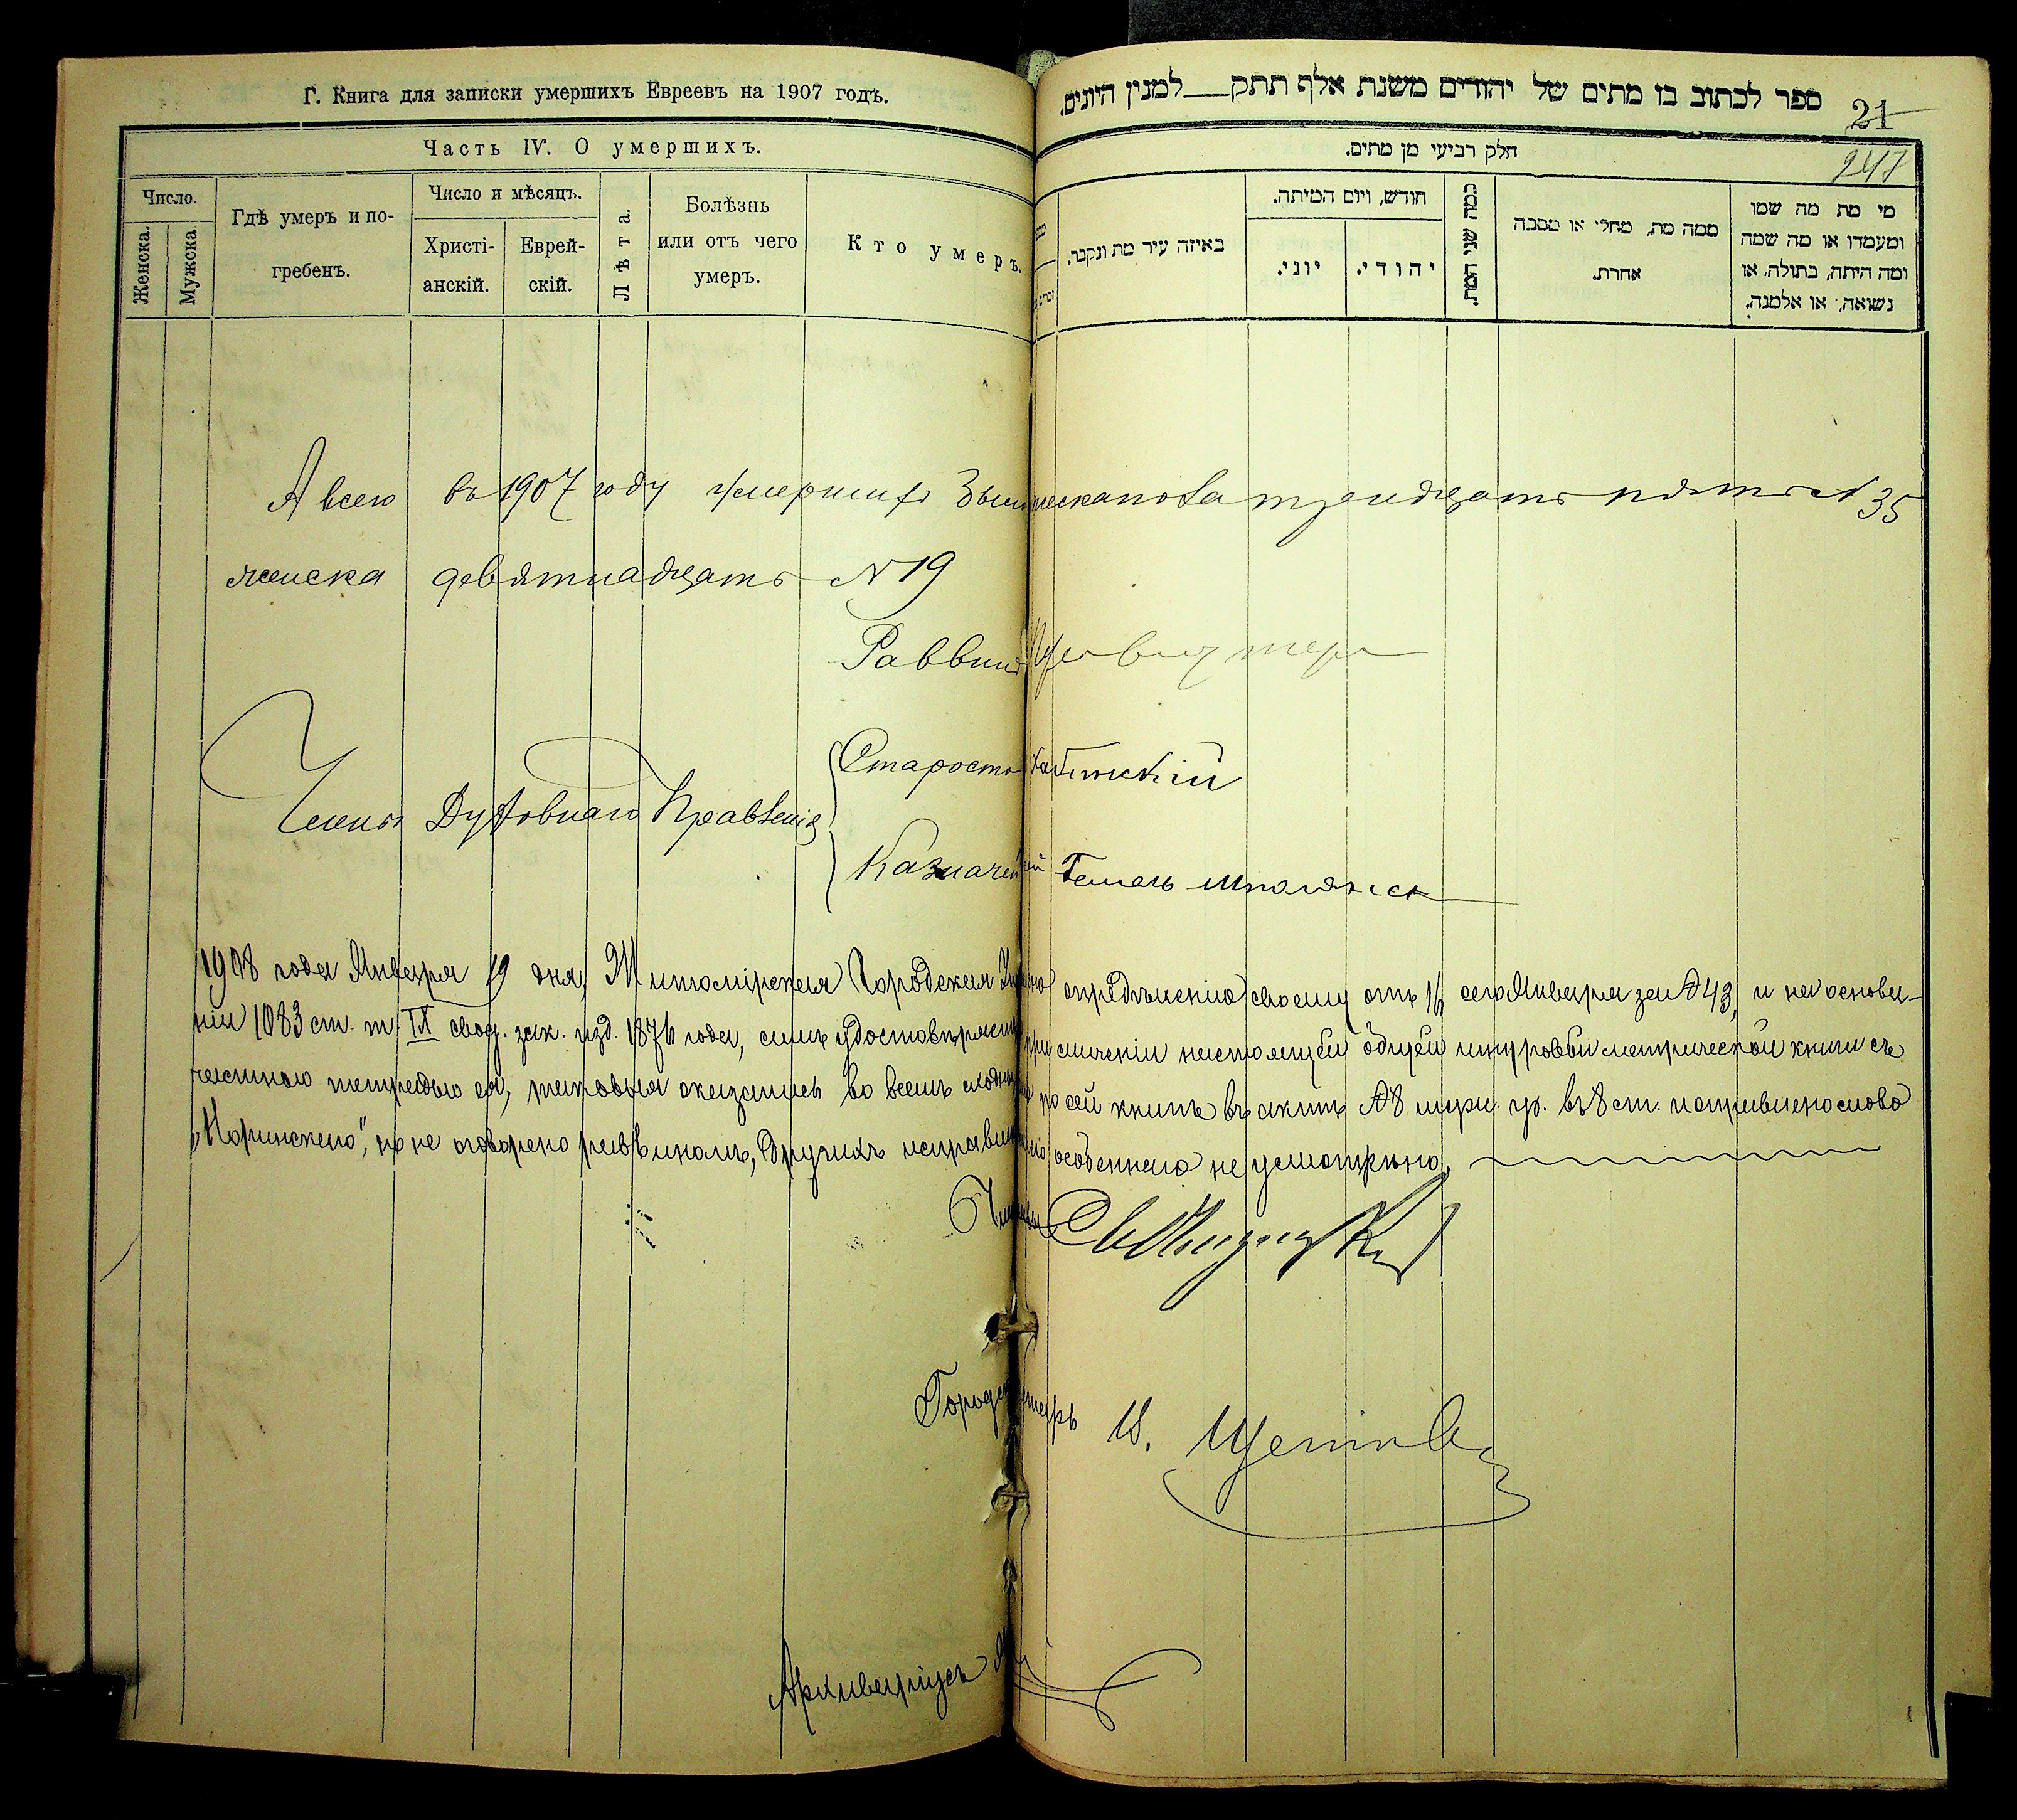 Г. Книга для записки умершихъ Евреевъ на 1907 годъ.
Часть IV. О умершихъ.
Число.
Женска.
Мужска.
Гдѣ умеръ и по-
гребенъ.
Число и мѣсяцъ.
Христі-
анскій.
Еврей-
скій.
Лѣта.
Болѣзнь
или отъ чего
умеръ.
Кто умеръ.
ספר לכתוב בו מתים של יהודים משנת אלף תתק___למנין היונים.
21
247
חלק רביעי מן מתים.
באיזה עיר מת ונקבר.
חודש, ויום המיתה.
יוני.
יהודי.
כמה שני המת.
ממה מת, מחלי או מסבה
אחרת.
מי מת מה שמו
ומעמדו או מה שמה
ומה היתה, בתולה, או
נשואה, או אלמנה.
А всего въ 1907 году умершихъ было мужскапола тридцать пять № 35
женска девятнадцать № 19
Раввинъ
Члены Духовнаго Правленія
Староста
Казначей
1908 года Января 19 дня, Житомірская Городская по опредѣленію своему отъ 16 сего Января за № 43, и на основа-
ніи 1083 ст. т. IX свод. зак. изд. 1876 года, симъ удостовѣряетъ при сличеніи настоящей общей шнуровой метрической книги съ
частною тетрадью ея, таковыя оказались во всемъ сходны но сей книгѣ въ актѣ № 8 мужч. гр. въ 8 ст. поправлено слово
„Норинскаго", но не оговорено раввиномъ, другихъ исправленій особеннаго не усмотрѣно.
Архиваріусъ